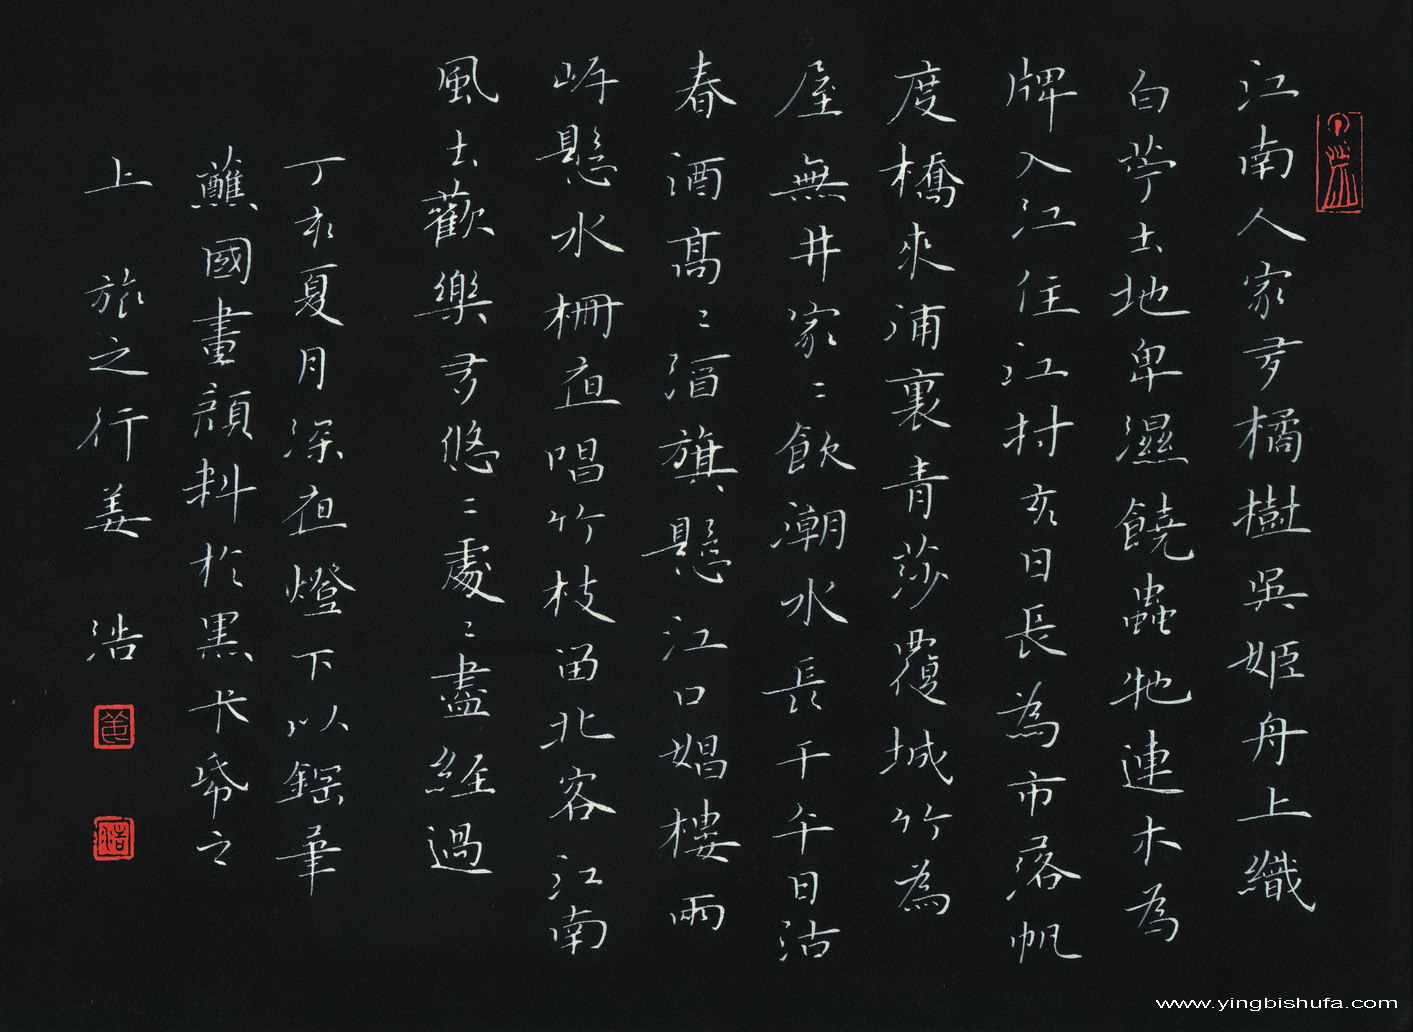 江南人家多橘樹吳姬舟上織
白苧土地卑濕饒蟲虵連木為
牌入江住江村亥日長為市落帆
度橋來浦裏青莎覆城竹為
屋無井家〻飲潮水長干午日沽
春酒高〻酒旗懸江口娼樓兩
岸懸水柵夜唱竹枝留北客江南
風土歡樂多悠〻處〻盡經過
丁亥夏月深夜燈下以鋼筆
蘸國畫顏料於黑卡紙之
上 旅之行姜 浩
姜
浩
www.yingbishufa.com